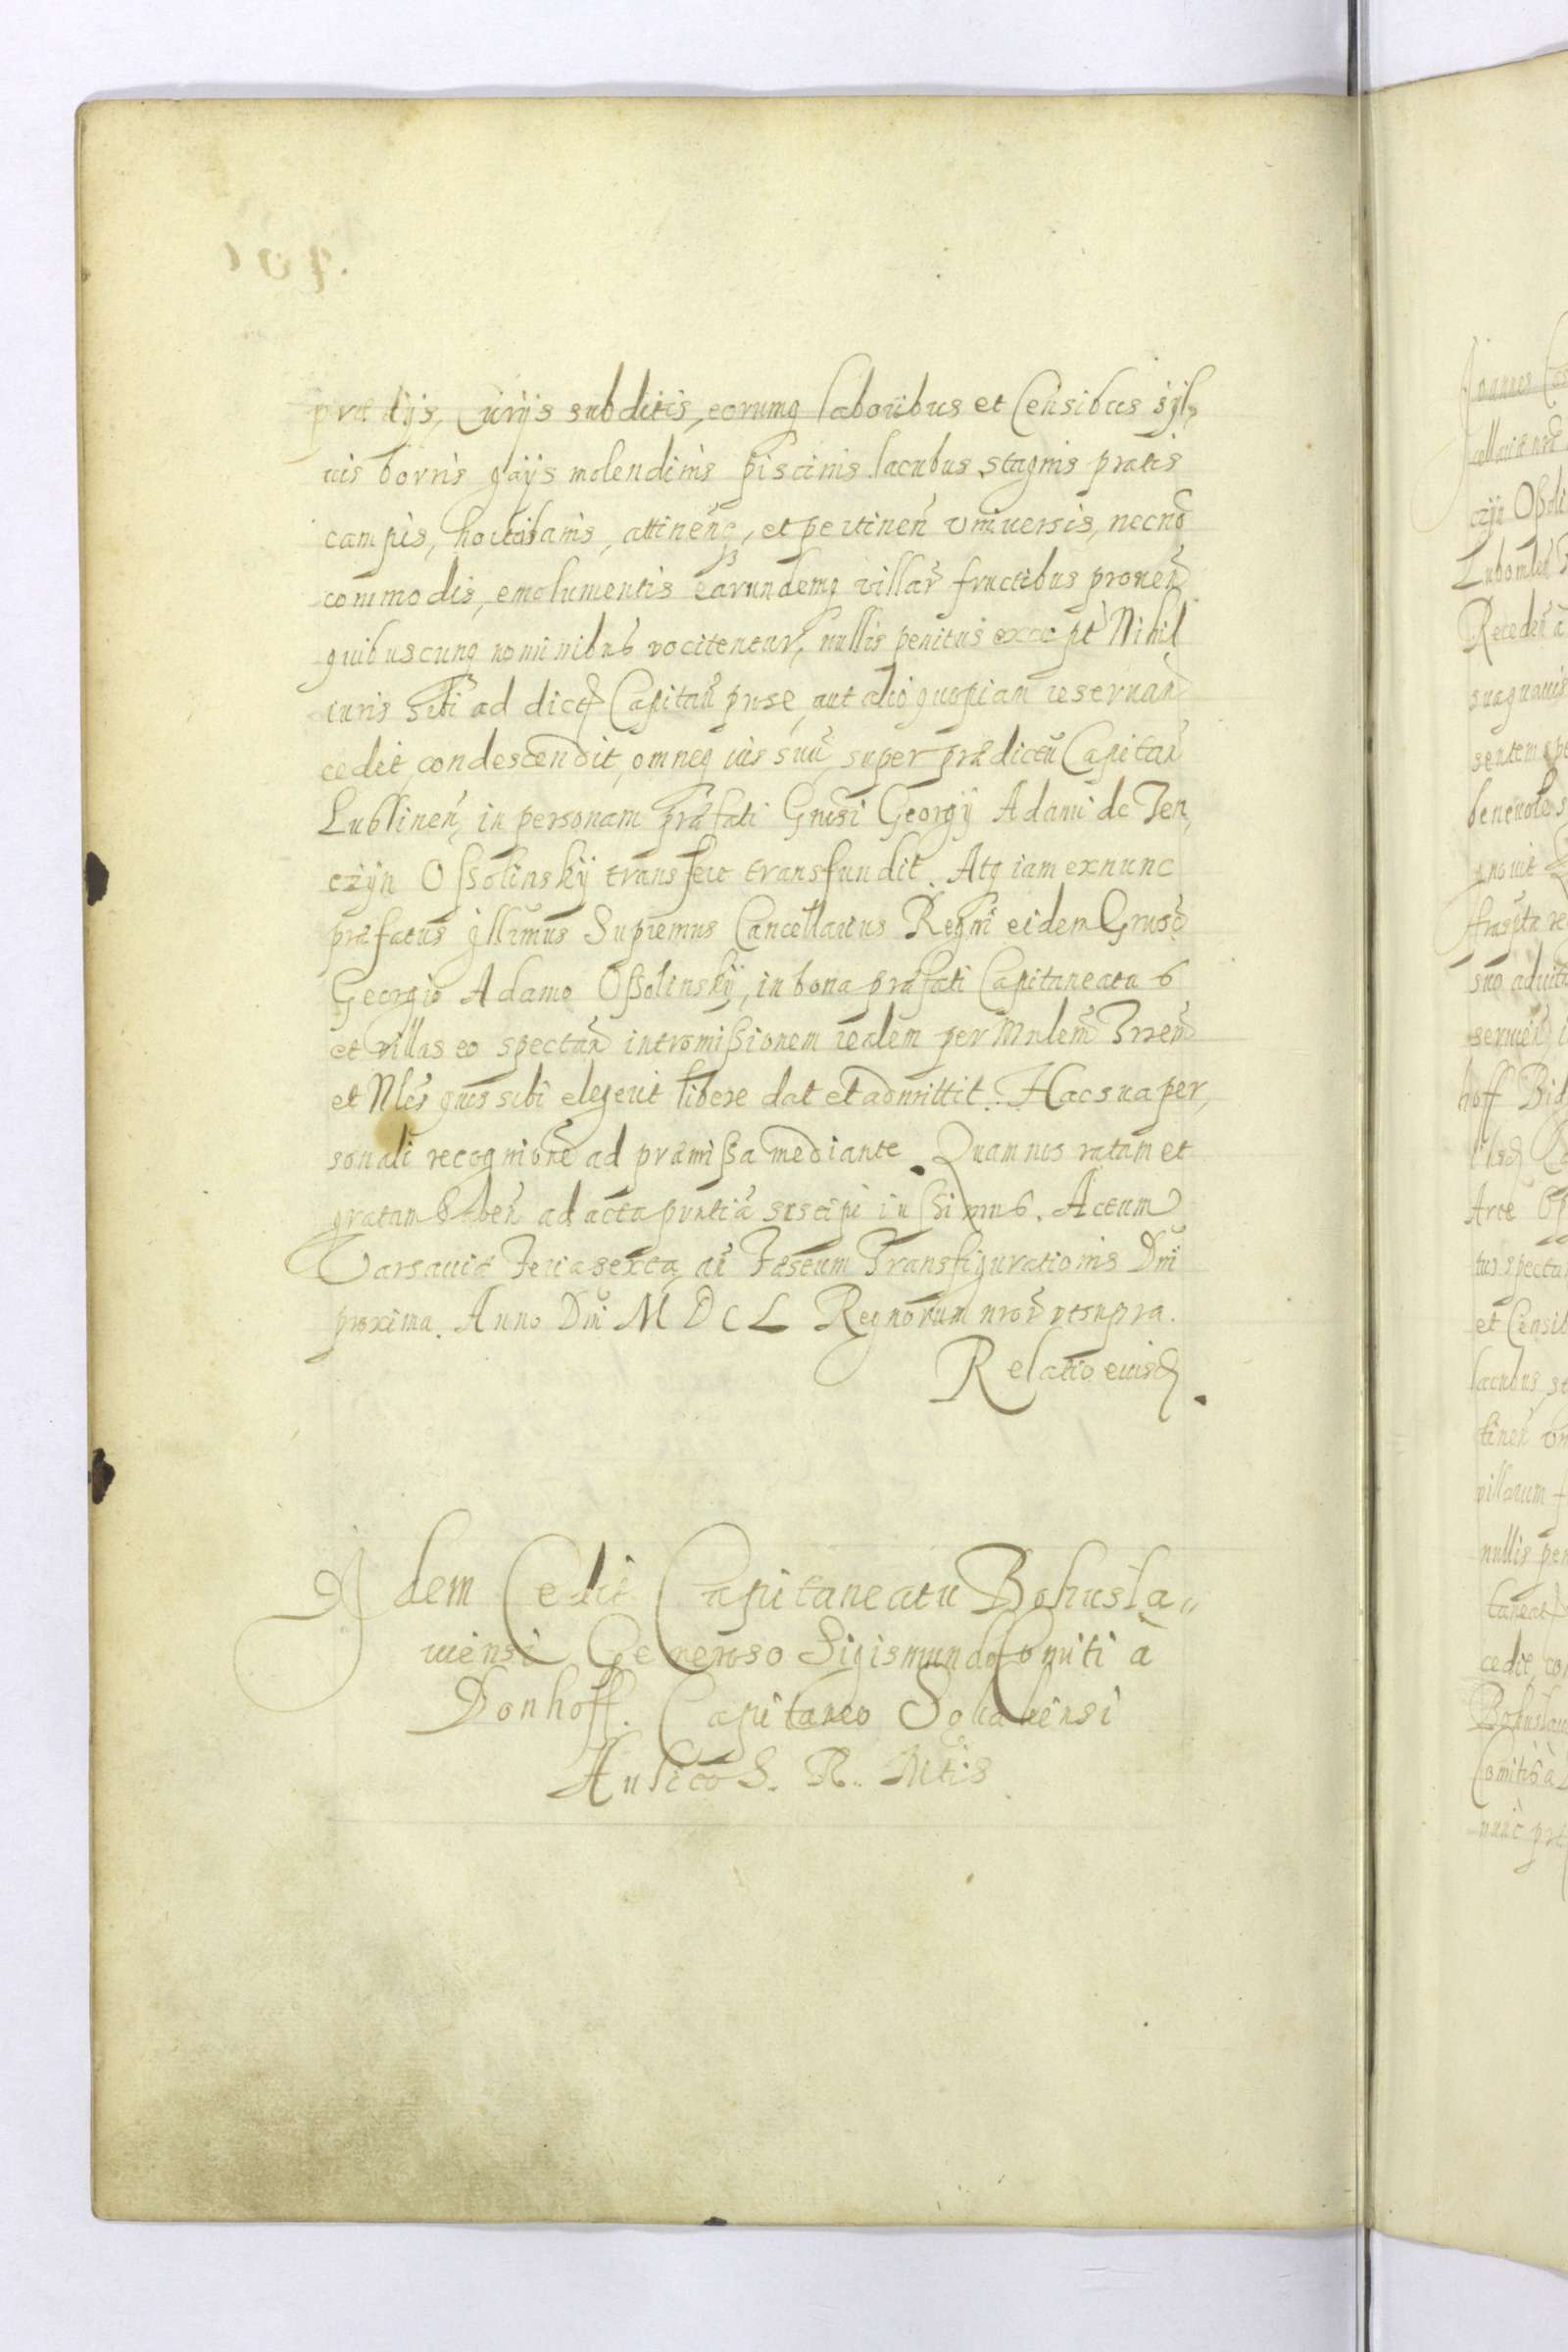 prædijs, Curijs subditis, eorumq laboribus et Censibus syl,
uis borris gaijs molendinis piscinis lacubus stagnis pratis
campis, hortulanis, attineñ, et pertineñ vniuersis, necnō
commodis, emolumentis earundemq villar̃ fructibus proueñ
quibuscunq nominibus vocitentur, nullis penitus except Nihil
iuris sibi ad dict Capitañ pro se, aut alio quopiam reseruan
cedit, condescendit, omneq ius suū, super prædictū Capitañ
Lublineñ, in personam præfati Gnŭsi Georgij Adami de Ten,
czijn Oßolinskij transfert transfundit. Atq iam exnunc
præfatus Illrmus Supremus Cancellarius Regni eidem Gnŭso
Georgio Adamo Oßolinskij, in bona præfati Capitaneatus
et villas eo spectañ intromißionem realem per Mnlem Trreñ
et Nles quos sibi elegerit libere dat et admittit. Hac sua per,
sonali recognione ad præmißa mediante. Quam nos ratam et
gratam haben ad acta pnntia suscipi iußimus. Actum
Varsauiæ Feria sexta añ Festum Transfigurationis Dni
proxima. Anno Dni M D C L Regnorum nror̃ vt supra.
Relatio eiusd
Idem Cedit Capitaneatu Bohusla„
uiensi Generoso Sigismundo Comiti à
Donhoff. Capitaneo Sokaliensi
Aulico S. R. Mtis
Recedeñ à
hoff Bid
Arce
tus specta
et Censib
lacubus, st
tineñ vn
villarum f
nullis pen
cedit, con
Bohuslau
Comitis à D
nunc præ